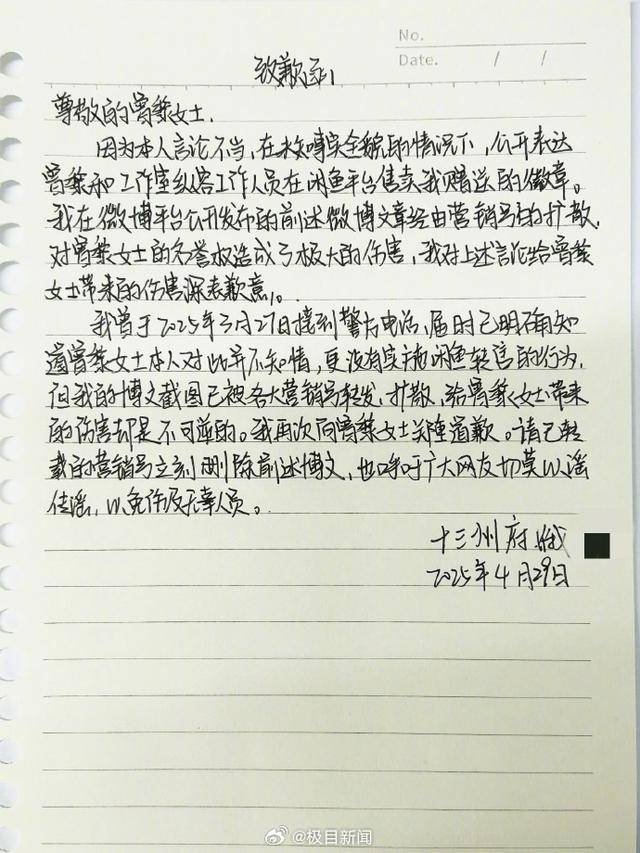 No.
Date. / /
致歉函
尊敬的曾黎女士.
因为本人言论不当,在未知晓全貌的情况下,公开表达
曾黎和工作室纵容工作人员在闲鱼平台售卖我赠送的徽章。
我在微博平台公开发布的前述微博文章经由营销号的扩散,
对曾黎女士的名誉权造成了极大的伤害,我对上述言论给曾黎
女士带来的伤害深表歉意。
我曾于2025年3月27日接到警方电话,届时已明确知
道曾黎女士本人对此并不知情,更没有实施闲鱼转售的行为,
但我的博文截图已被各大营销号转发、扩散,给曾黎女士带来
的伤害却是不可逆的。我再次向曾黎女士郑重道歉。请已转
载的营销号立刻删除前述博文,也呼吁广大网友切莫以谣
传谣,以免伤及无辜人员。
十三州府
2025年4月29日
@极目新闻